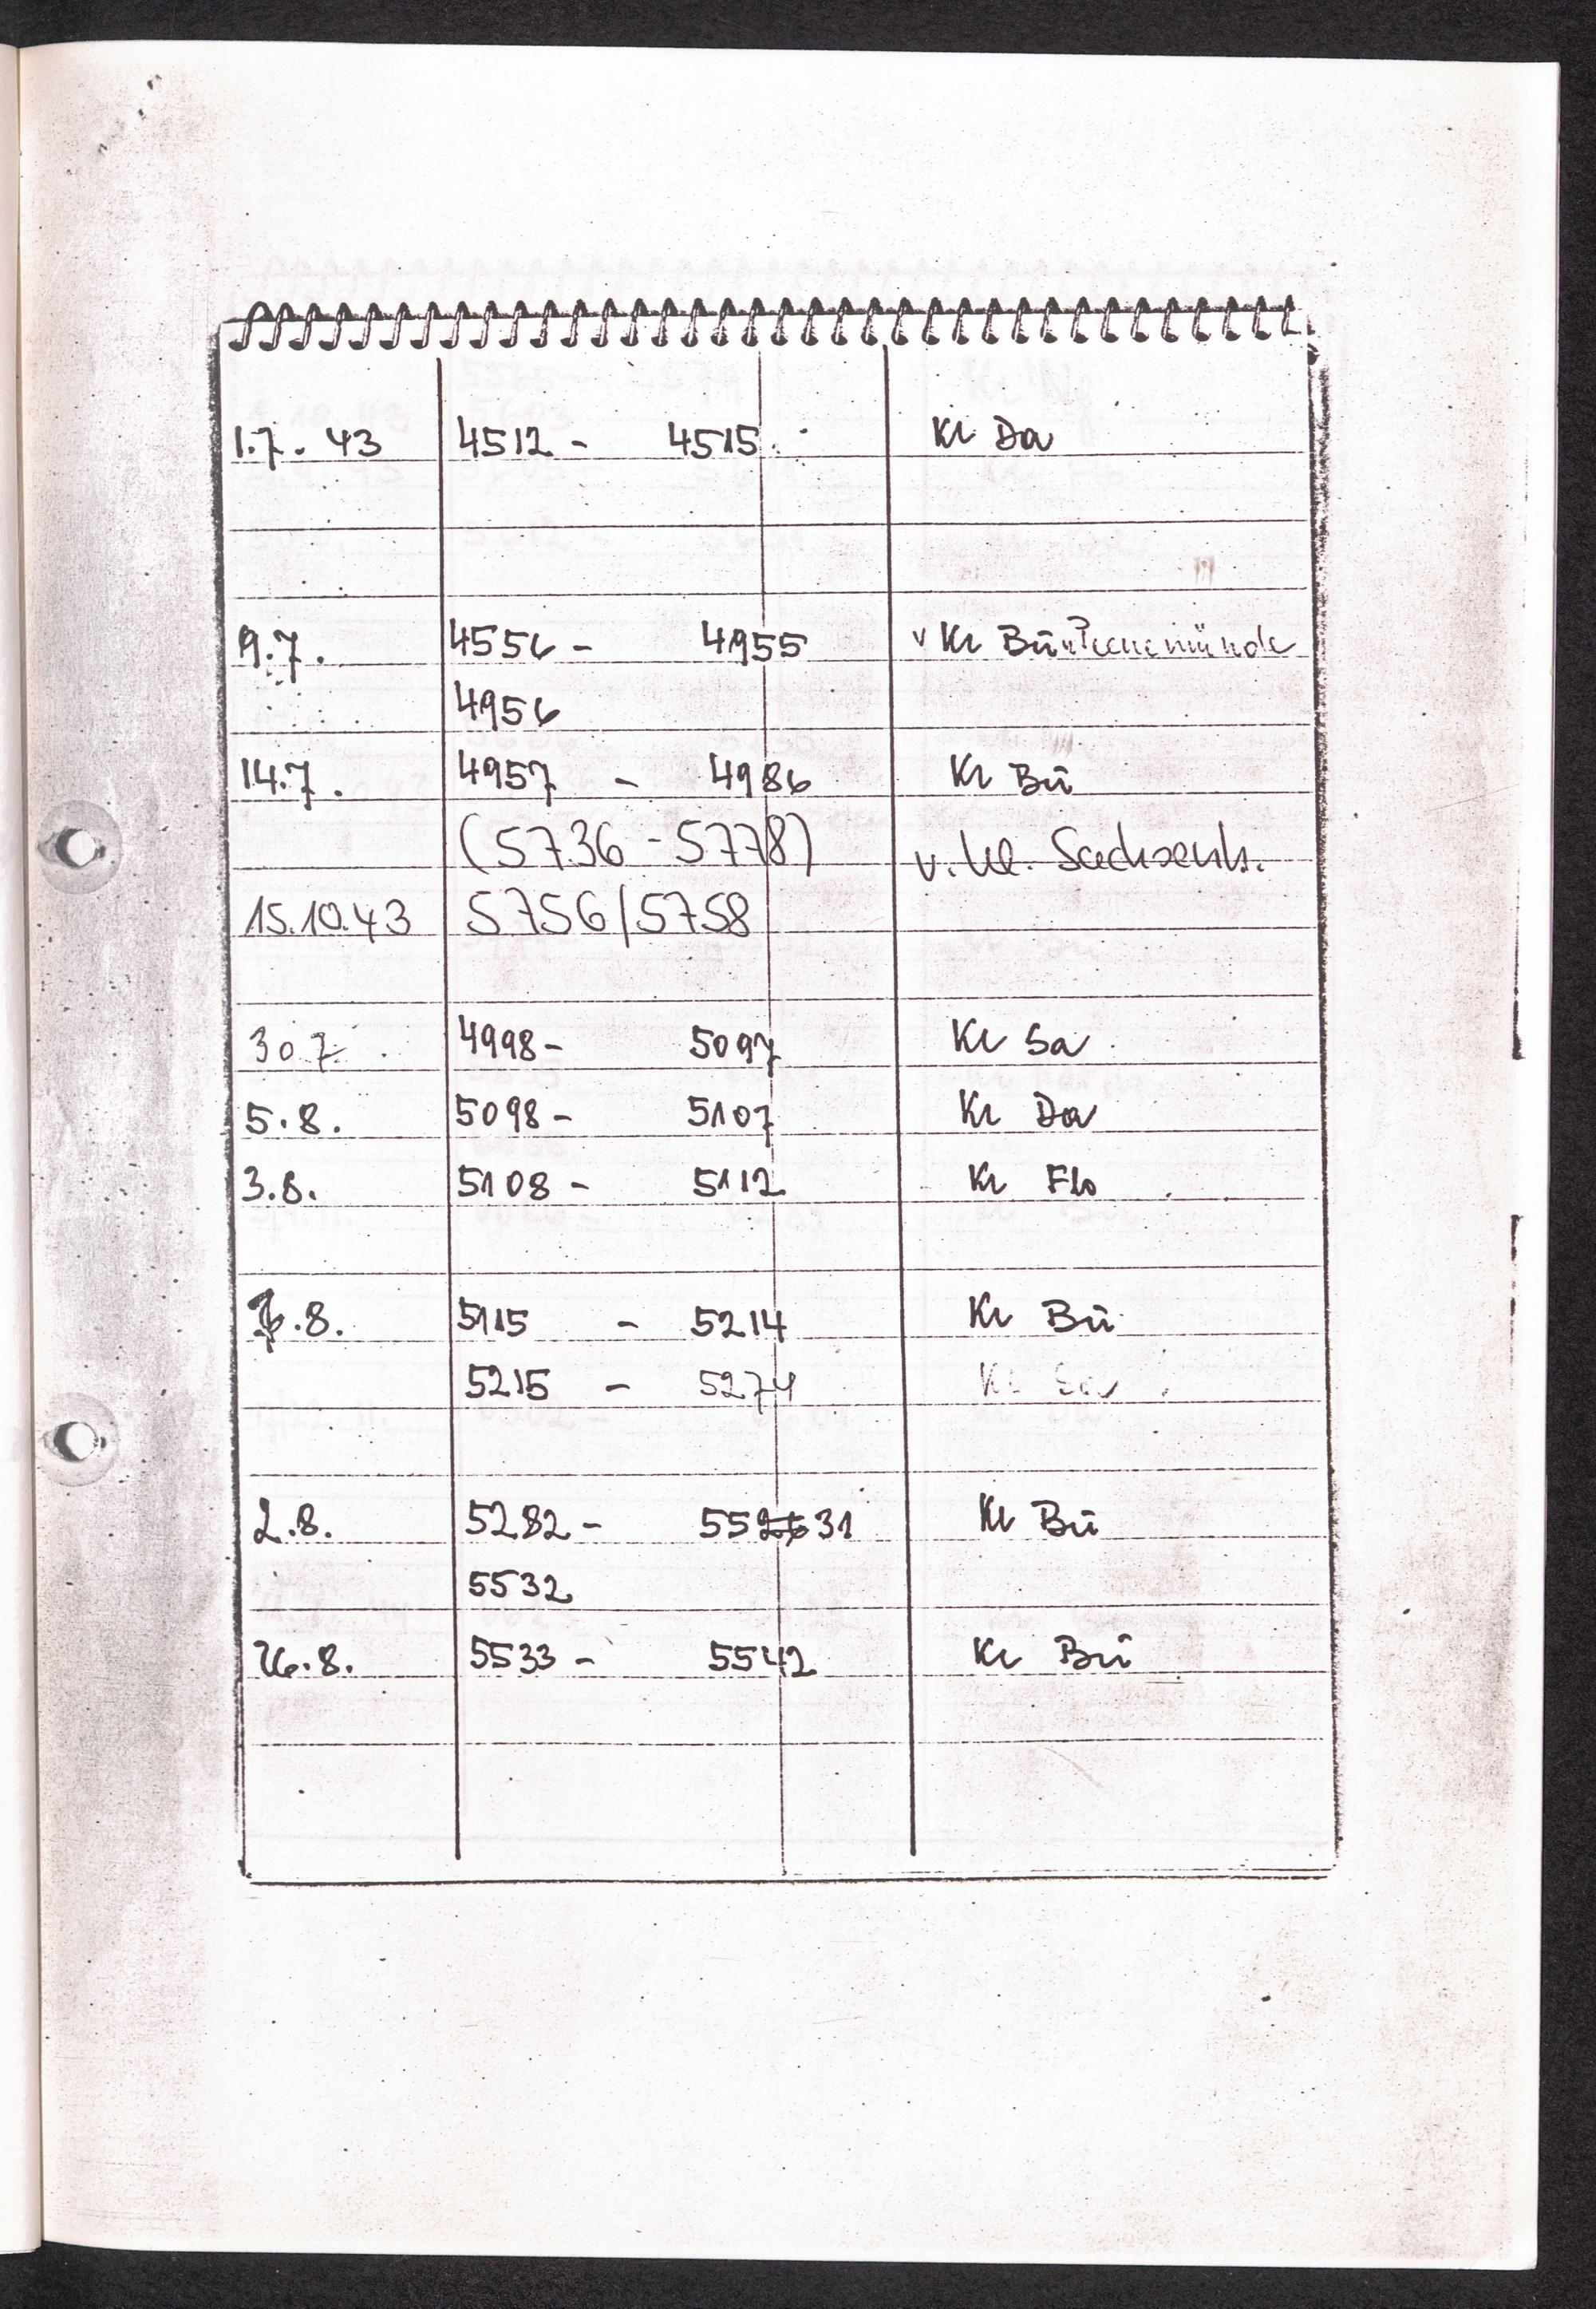 1.7. 43 4512 - 4515 Kl Da
9.7. 4556 - 4955 v Kl Bü "Peenemünde
4956
14.7. 4957 - 4986 Kl Bü
(5736 - 5778) v. Kl. Sachsenh.
15.10.43 5756/5758
30 7. 4998 - 5097 Kl Sa
5.8. 5098 - 5107 Kl Da
3.8. 5108 - 5112 Kl Flo
.8. 5115 - 5214 Kl Bü
5215 - 5274 Kl Sa
2.8. 5282 - 5531 Kl Bü
5532
26.8. 5533 - 5542 Kl Bü